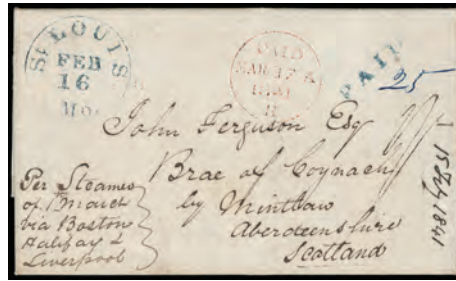 St LOUIS
FEB
16
Mo.
PAID
MAR 17
1841
PAID
25
John Ferguson Esq
Brae of Coynach
by Mintlaw
Aberdeenshire
Scotland
Per Steamer
of 1 March
via Boston
Halifax &
Liverpool
15 Feby 1841